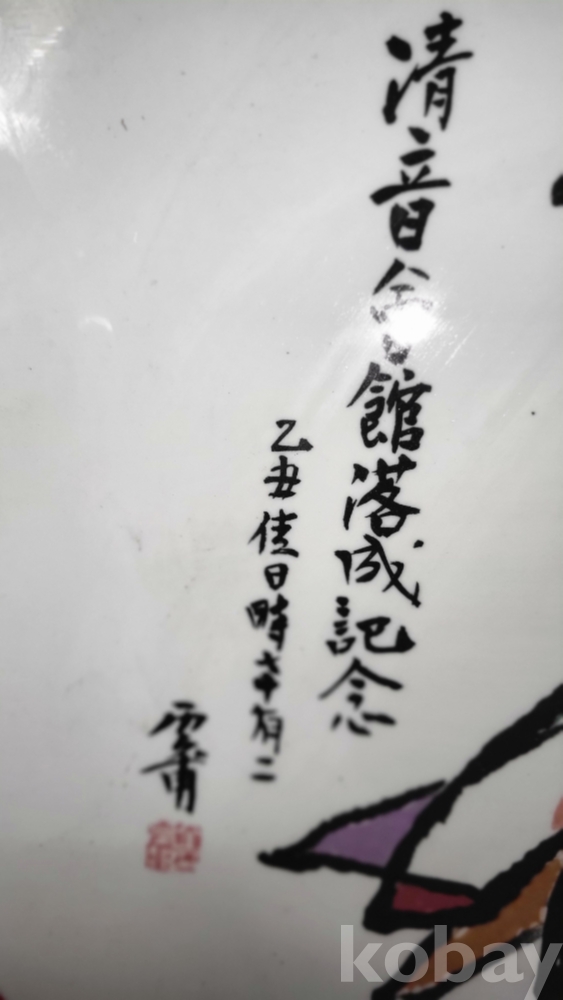 清音會館落成記念
乙丑佳日時七十有二
雲甫
kobay